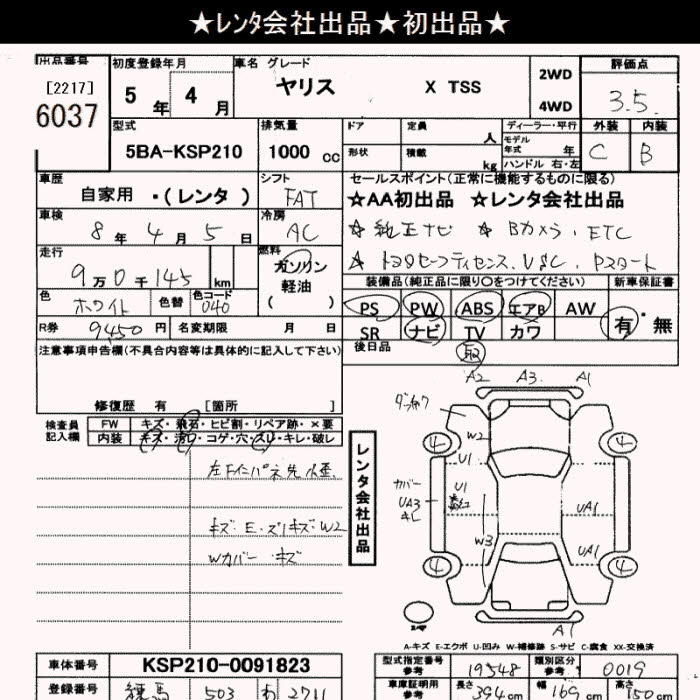 ★レンタ会社出品★初出品★
出品番号
[2217]
6037
初度登録年月
5年 4月
車名 グレード
ヤリス X TSS
2WD
4WD
評価点
3.5
型式
5BA-KSP210
排気量
1000 cc
ドア 定員 人
形状 積載 kg
ディーラー・平行
モデル年式 年
ハンドル 右・左
外装 内装
C B
車歴
自家用 ・(レンタ )
シフト
FAT
セールスポイント(正常に機能するものに限る)
★AA初出品 ★レンタ会社出品
☆ 純正ナビ ☆ Bカメラ、ETC
☆ トヨタセーフティセンス、VSC、Pスタート
車検
8年 4月 5日
冷房
AC
走行
9万0千145 km
燃料
ガソリン
軽油
( )
装備品(純正品に限り○をつけてください)
新車保証書
PS PW ABS エアB AW
SR ナビ TV カワ
有・無
色
ホワイト
色替
色コード
040
R券 9450 円
名変期限 月 日
後日品
取
注意事項申告欄(不具合内容等は具体的に記入して下さい)
修復歴 有 [箇所 ]
検査員記入欄
FW キズ・飛石・ヒビ割・リペア跡・×要
内装 キズ・汚レ・コゲ・穴・スレ・キレ・破レ
キズ・E・ズリキズ・W2
Wカバー キズ
レンタ会社出品
A2 A3. A1
W2
U1
カバー
UA3
キレ
U1
W3
UA1
UA1
A1
4
4
4
4
A-キズ E-エクボ U-凹み W-補修跡 S-サビ C-腐食 XX-交換済
車体番号 KSP210-0091823
型式指定番号 参考 19548
類別区分 参考 0019
登録番号 練馬 503 わ 2711
車庫証明用 参考 長さ 394 cm 幅 169 cm 高さ 150 cm